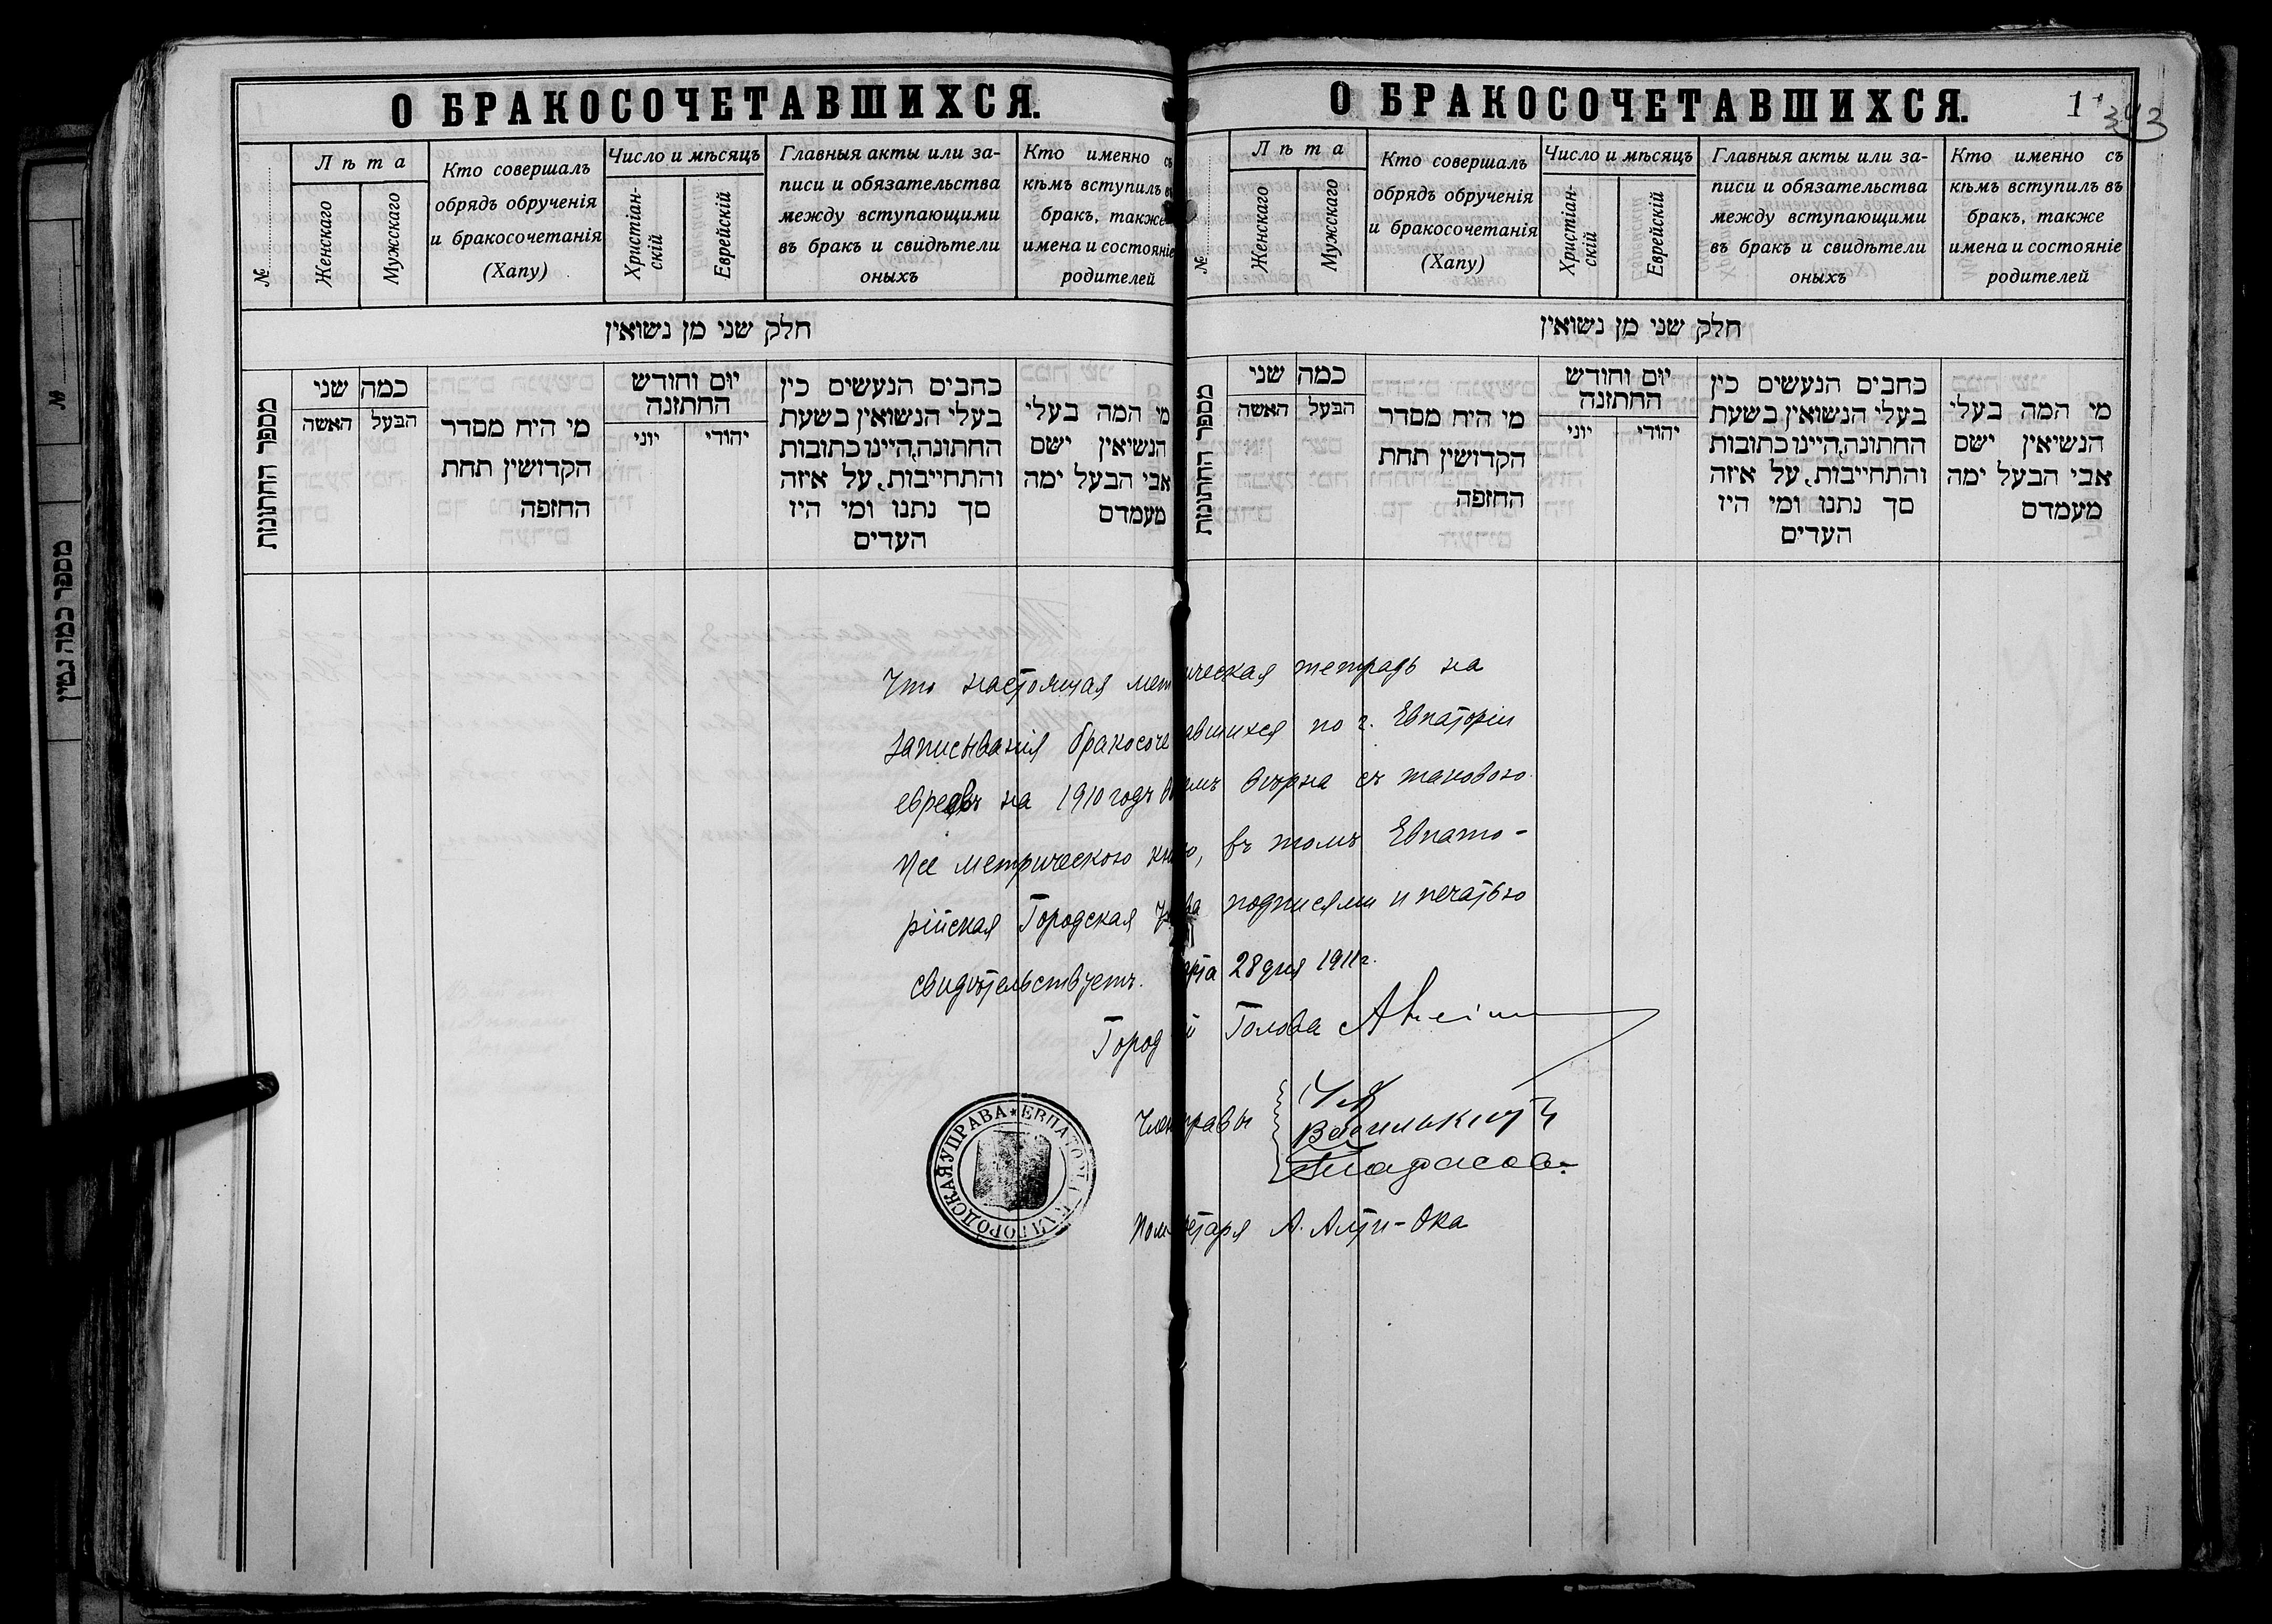 О БРАКОСОЧЕТАВШИХСЯ.
№
Лѣта
Женскаго
Мужскаго
Кто совершалъ
обрядъ обрученія
и бракосочетанія
(Хапу)
Число и мѣсяцъ
Христіан-
скій
Еврейскій
Главныя акты или за-
писи и обязательства
между вступающими
въ бракъ и свидѣтели
оныхъ
Кто именно съ
кѣмъ вступилъ въ
бракъ, также
имена и состояніе
родителей
חלק שני מן נשואין
מספר החתונות
כמה שני
האשה
הבעל
מי היח מסדר
הקדושין תחת
החופה
יום וחודש
החתונה
יוני
יהודי
כחבים הנעשים כין
בעלי הנשואין בשעת
החתונה, היינו כתובות
והתחייבות, על איזה
סך נתנו ומי היו
העדים
מי המה בעלי
הנשיאין ישם
אבי הבעל ימה
מעמדם
О БРАКОСОЧЕТАВШИХСЯ.
1
343
№
Лѣта
Женскаго
Мужскаго
Кто совершалъ
обрядъ обрученія
и бракосочетанія
(Хапу)
Число и мѣсяцъ
Христіан-
скій
Еврейскій
Главныя акты или за-
писи и обязательства
между вступающими
въ бракъ и свидѣтели
оныхъ
Кто именно съ
кѣмъ вступилъ въ
бракъ, также
имена и состояніе
родителей
חלק שני מן נשואין
מספר החתונות
כמה שני
האשה
הבעל
מי היח מסדר
הקדושין תחת
החופה
יום וחודש
החתונה
יוני
יהודי
כחבים הנעשים כין
בעלי הנשואין בשעת
החתונה, היינו כתובות
והתחייבות, על איזה
סך נתנו ומי היו
העדים
מי המה בעלי
הנשיאין ישם
אבי הבעל ימה
מעמדם
Что настоящая мет ическая тетрадь на
записыванія бракосоче авшихся по г. Евпаторіи
евреевъ на 1910 годъ вѣрна съ таковою
же метрическою, въ томъ Евпато-
рійская Городская Управа подписями и печатью
свидѣтельствуетъ. арта 28 дня 1911 г.
Город й Голова
Член правы
Васильки
Пом етаря А. Алти-Ока
ЕВПАТОРІЙСКАЯ ГОРОДСКАЯ УПРАВА
№
מספר כמה גטין